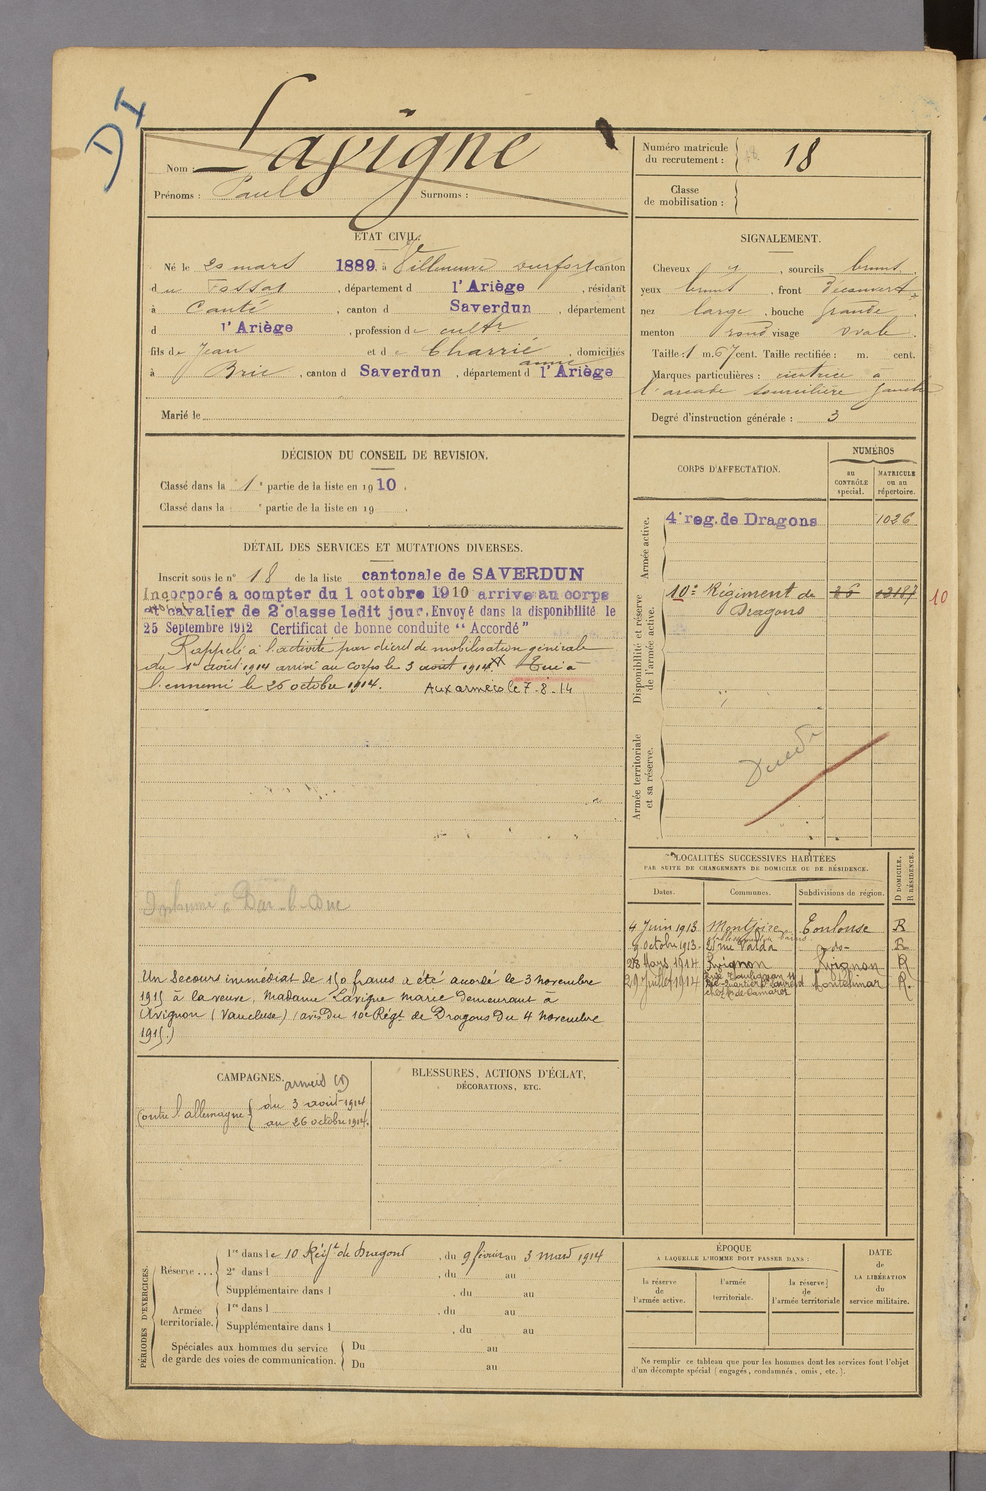 DI
Nom : Lavigne
Prénoms : Paul Surnoms :
Numéro matricule
du recrutement : 18
Classe
de mobilisation :
ÉTAT CIVIL.
Né le 20 mars 1889, à Villeneuve canton
d u Fossat, département d l'Ariège, résidant
à Canté, canton d Saverdun, département
d l'Ariège, profession de cultr
fils de Jean et de Charrié anne, domiciliés
à Brie, canton d Saverdun, département d l'Ariège
Marié le
SIGNALEMENT.
Cheveux, sourcils bruns
yeux bruns, front découvert
nez large, bouche grande
menton rond visage ovale
Taille : 1 m. 67 cent. Taille rectifiée : m. cent.
Marques particulières : cicatrice à
l'arcade sourcilière gauche
Degré d'instruction générale : 3
DÉCISION DU CONSEIL DE REVISION.
Classé dans la 1e partie de la liste en 1910.
Classé dans la e partie de la liste en 19 .
CORPS D'AFFECTATION.
NUMÉROS
au CONTRÔLE spécial.
MATRICULE ou au répertoire.
Armée active.
4e reg. de Dragons 1026
Disponibilité et réserve de l'armée active.
10e Régiment de 26 10
Dragons
Armée territoriale et sa réserve.
Décédé
DÉTAIL DES SERVICES ET MUTATIONS DIVERSES.
Inscrit sous le n° 18 de la liste cantonale de SAVERDUN
Incorporé a compter du 1 octobre 1910 arrive au corps
et cavalier de 2e classe ledit jour. Envoyé dans la disponibilité le
25 Septembre 1912 Certificat de bonne conduite "Accordé"
Rappelé à l'activité par décret de mobilisation générale
du 1er août 1914 arrivé au corps le 3 août 1914 xx Tué à
l'ennemi le 26 octobre 1914. Aux armées le 7-8-14
Inhumé à Bar-le-Duc
Un Secours immédiat de 150 francs a été accordé le 3 novembre
1915 à la veuve, Madame Lavigne Marie demeurant à
Avignon (Vaucluse) (avis du 10e Régt de Dragons du 4 novembre
1915.)
LOCALITÉS SUCCESSIVES HABITÉES
PAR SUITE DE CHANGEMENTS DE DOMICILE OU DE RÉSIDENCE.
Dates. Communes. Subdivisions de région. D DOMICILE. R RÉSIDENCE.
4 Juin 1913. Montjoire Toulouse R
9 octobre 1913. 21 rue Valda -do- R
28 Mars 1914 Avignon Avignon R
29 Juillet 1914 Montélimar R.
CAMPAGNES.
armées (1)
Contre l'allemagne { du 3 août 1914
au 26 octobre 1914.
BLESSURES, ACTIONS D'ÉCLAT,
DÉCORATIONS, ETC.
PÉRIODES D'EXERCICES.
Réserve ... 1re dans le 10 Régt de Dragons, du 9 février au 3 mars 1914
2e dans l , du au
Supplémentaire dans l , du au
Armée territoriale. 1re dans l , du au
Supplémentaire dans l , du au
Spéciales aux hommes du service
de garde des voies de communication. Du au
Du au
ÉPOQUE
A LAQUELLE L'HOMME DOIT PASSER DANS :
la réserve de l'armée active.
l'armée territoriale.
la réserve de l'armée territoriale
DATE
de
LA LIBÉRATION
du
service militaire.
Ne remplir ce tableau que pour les hommes dont les services font l'objet
d'un décompte spécial (engagés, condamnés, omis, etc.).